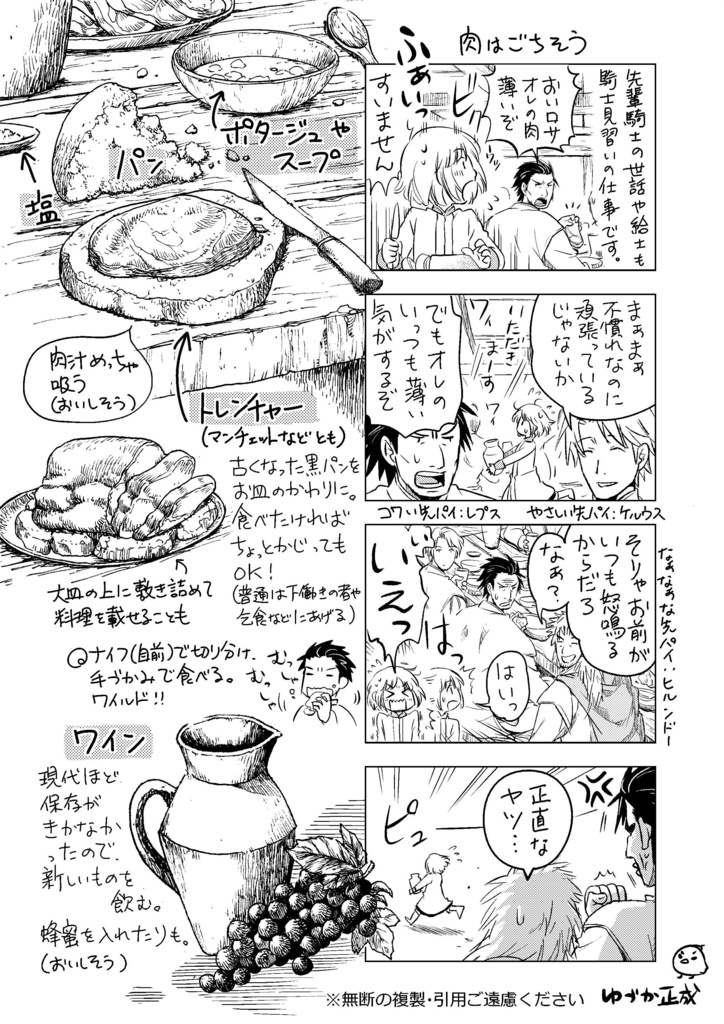 肉はごちそう
先輩騎士の世話や給士も
騎士見習いの仕事です。
おいロサ
オレの肉
薄いぞ
ビ
ふぁいっ
すいません
まぁまぁ
不慣れなのに
頑張っている
じゃないか
いただき
まーす
ワイ
ワイ
でもオレの
いっつも薄い
気がするぞ
コワい先パイ:レプス
やさしい先パイ:ケルウス
そりゃお前が
いつも怒鳴る
からだろ
なぁ?
なぁなぁな先パイ:ヒルンドー
はいっ
はっ
いいえっ
正直な
ヤツ…
ピュー
ポタージュや
スープ
パン
塩
肉汁めっちゃ
吸う
(おいしそう)
トレンチャー
(マンチェットなどとも)
古くなった黒パンを
お皿のかわりに。
食べたければ
ちょっとかじっても
OK!
(普通は下働きの者や
乞食などにあげる)
大皿の上に敷き詰めて
料理を載せることも
ナイフ(自前)で切り分け、
手づかみで食べる。
ワイルド!!
むっしゃ
むっしゃ
ワイン
現代ほど
保存が
きかなか
ったので、
新しいものを
飲む。
蜂蜜を入れたりも。
(おいしそう)
※無断の複製・引用ご遠慮ください
ゆづか正成